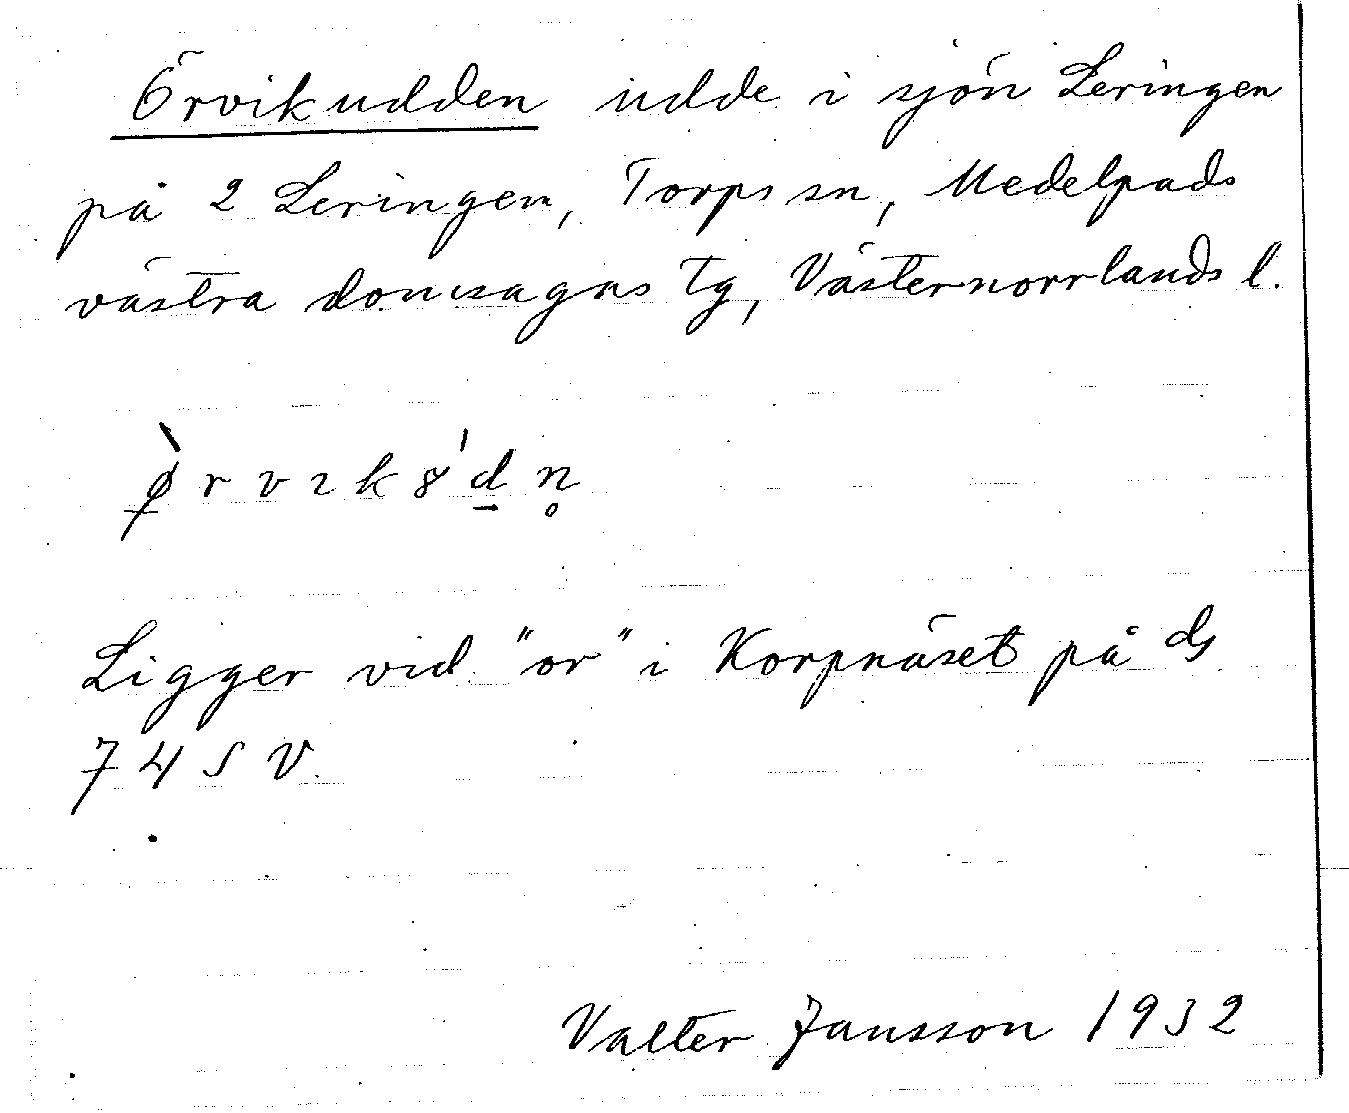 Örvikudden udde i sjön Leringen
på 2 Leringen, Torps sn, Medelpads
västra domsagas tg, Västernorrlands l.
Ligger vid "or" i Korpnäset på ds
74 SV
Valter Jansson 1932